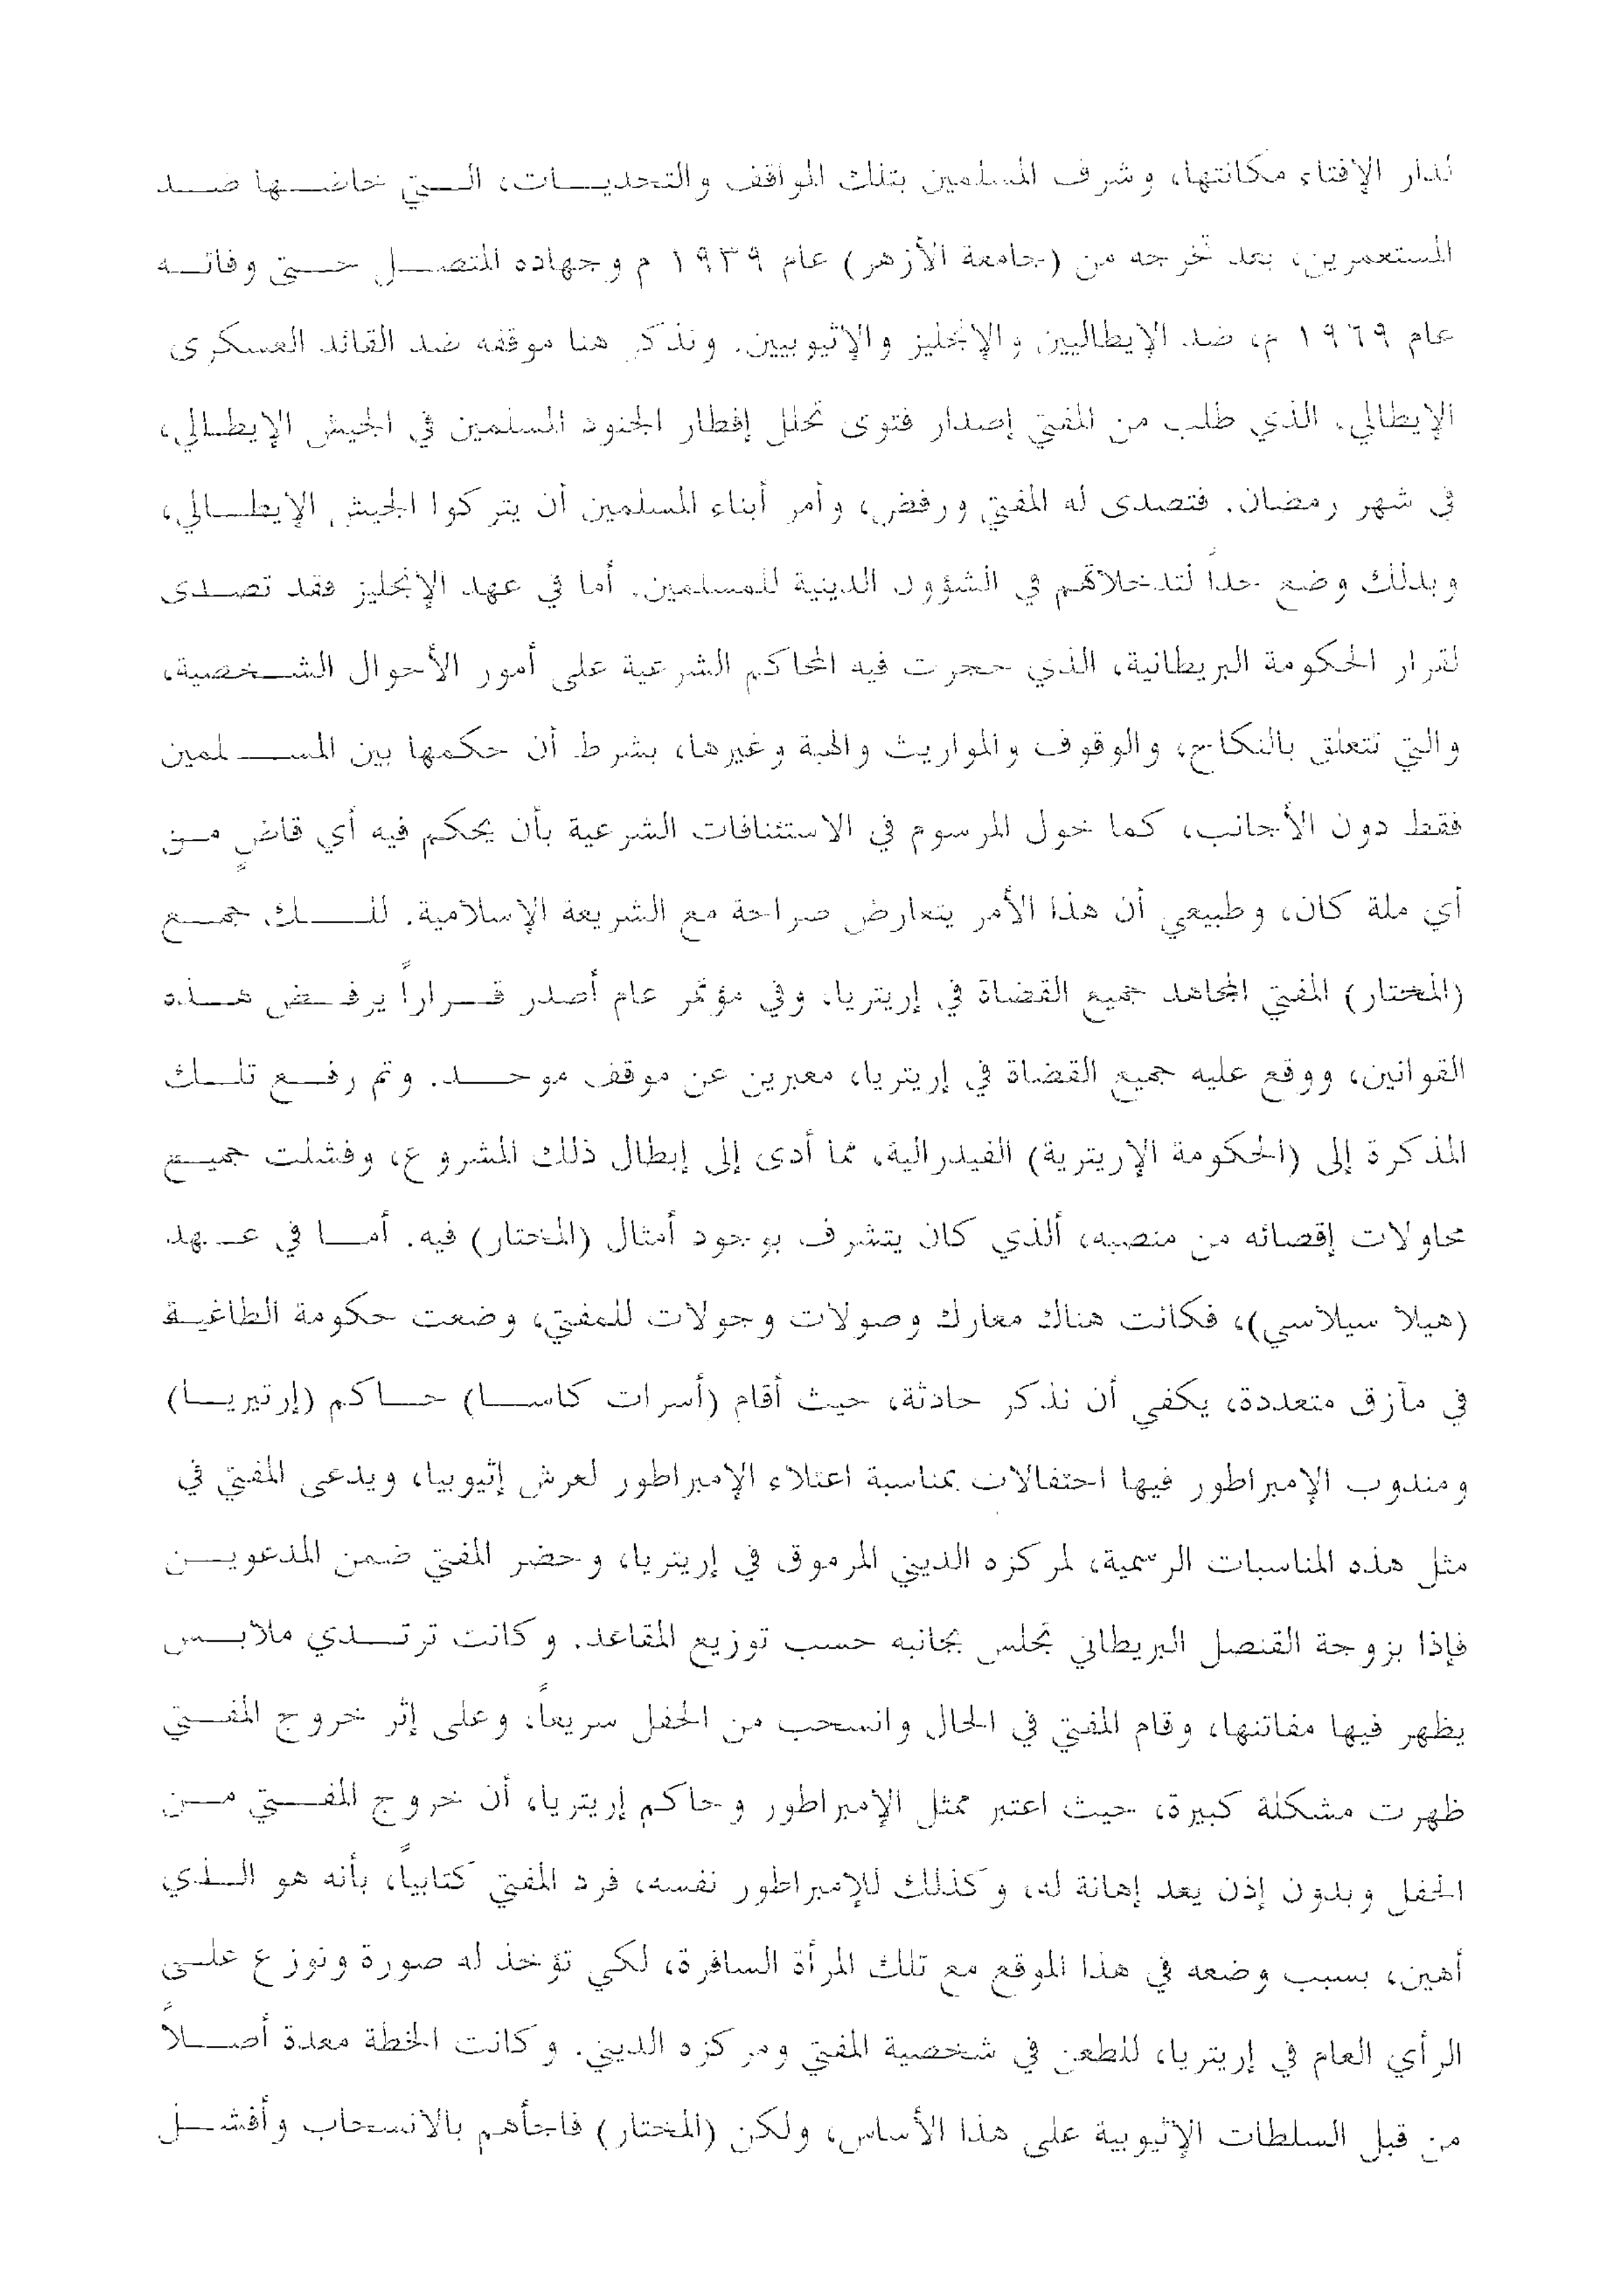 لدار الإفتاء مكانتها، وشرف المسلمين بتلك المواقف والتحديات، التي خاضها ضد
المستعمرين، بعد تخرجه من (جامعة الأزهر) عام ١٩٣٩ م وجهاده المتصل حتى وفاته
عام ١٩٦٩ م، ضد الإيطاليين والإنجليز والإثيوبيين. ونذكر هنا موقفه ضد القائد العسكرى
الإيطالي، الذي طلب من المفتي إصدار فتوى تحلل إفطار الجنود المسلمين في الجيش الإيطالي،
في شهر رمضان. فتصدى له المفتي ورفض، وأمر أبناء المسلمين أن يتركوا الجيش الإيطالي،
وبذلك وضع حداً لتدخلاتهم في الشؤون الدينية للمسلمين. أما في عهد الإنجليز فقد تصدى
لقرار الحكومة البريطانية، الذي حجرت فيه المحاكم الشرعية على أمور الأحوال الشخصية،
والتي تتعلق بالنكاح، والوقوف والمواريث والهبة وغيرها، بشرط أن حكمها بين المسلمين
فقط دون الأجانب، كما خول المرسوم في الاستئنافات الشرعية بأن يحكم فيه أي قاضٍ من
أي ملة كان، وطبيعي أن هذا الأمر يتعارض صراحة مع الشريعة الإسلامية. لذلك جمع
(المختار) المفتي المجاهد جميع القضاة في إريتريا، وفي مؤتمر عام أصدر قراراً يرفض هذه
القوانين، ووقع عليه جميع القضاة في إريتريا، معبرين عن موقف موحد. وتم رفع تلك
المذكرة إلى (الحكومة الإريترية) الفيدرالية، مما أدى إلى إبطال ذلك المشروع، وفشلت جميع
محاولات إقصائه من منصبه، ألذي كان يتشرف بوجود أمثال (المختار) فيه. أما في عهد
(هيلا سيلاسي)، فكانت هناك معارك وصولات وجولات للمفتي، وضعت حكومة الطاغية
في مآزق متعددة، يكفي أن نذكر حادثة، حيث أقام (أسرات كاسا) حاكم (إرتيريا)
ومندوب الإمبراطور فيها احتفالات بمناسبة اعتلاء الإمبراطور لعرش إثيوبيا، ويدعى المفتي في
مثل هذه المناسبات الرسمية، لمركزه الديني المرموق في إريتريا، وحضر المفتي ضمن المدعوين
فإذا بزوجة القنصل البريطاني تجلس بجانبه حسب توزيع المقاعد. وكانت ترتدي ملابس
يظهر فيها مفاتنها، وقام المفتي في الحال وانسحب من الحفل سريعاً، وعلى إثر خروج المفتي
ظهرت مشكلة كبيرة، حيث اعتبر ممثل الإمبراطور وحاكم إريتريا، أن خروج المفتي من
الحفل وبدون إذن يعد إهانة له، وكذلك للإمبراطور نفسه، فرد المفتي كتابياً، بأنه هو الذي
أهين، بسبب وضعه في هذا الموقع مع تلك المرأة السافرة، لكي تؤخذ له صورة وتوزع على
الرأي العام في إريتريا، للطعن في شخصية المفتي ومركزه الديني. وكانت الخطة معدة أصلاً
من قبل السلطات الإثيوبية على هذا الأساس، ولكن (المختار) فاجأهم بالانسحاب وأفشل